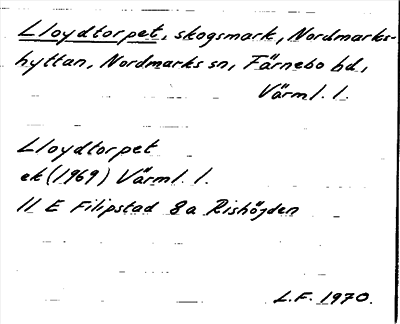 Lloydtorpet, skogsmark, Nordmarks-
hyttan, Nordmarks sn, Färnebo hd,
Värml. l.
Lloydtorpet
ek (1969) Värml. l.
11 E Filipstad 8a Rishöjden
L.F. 1970.